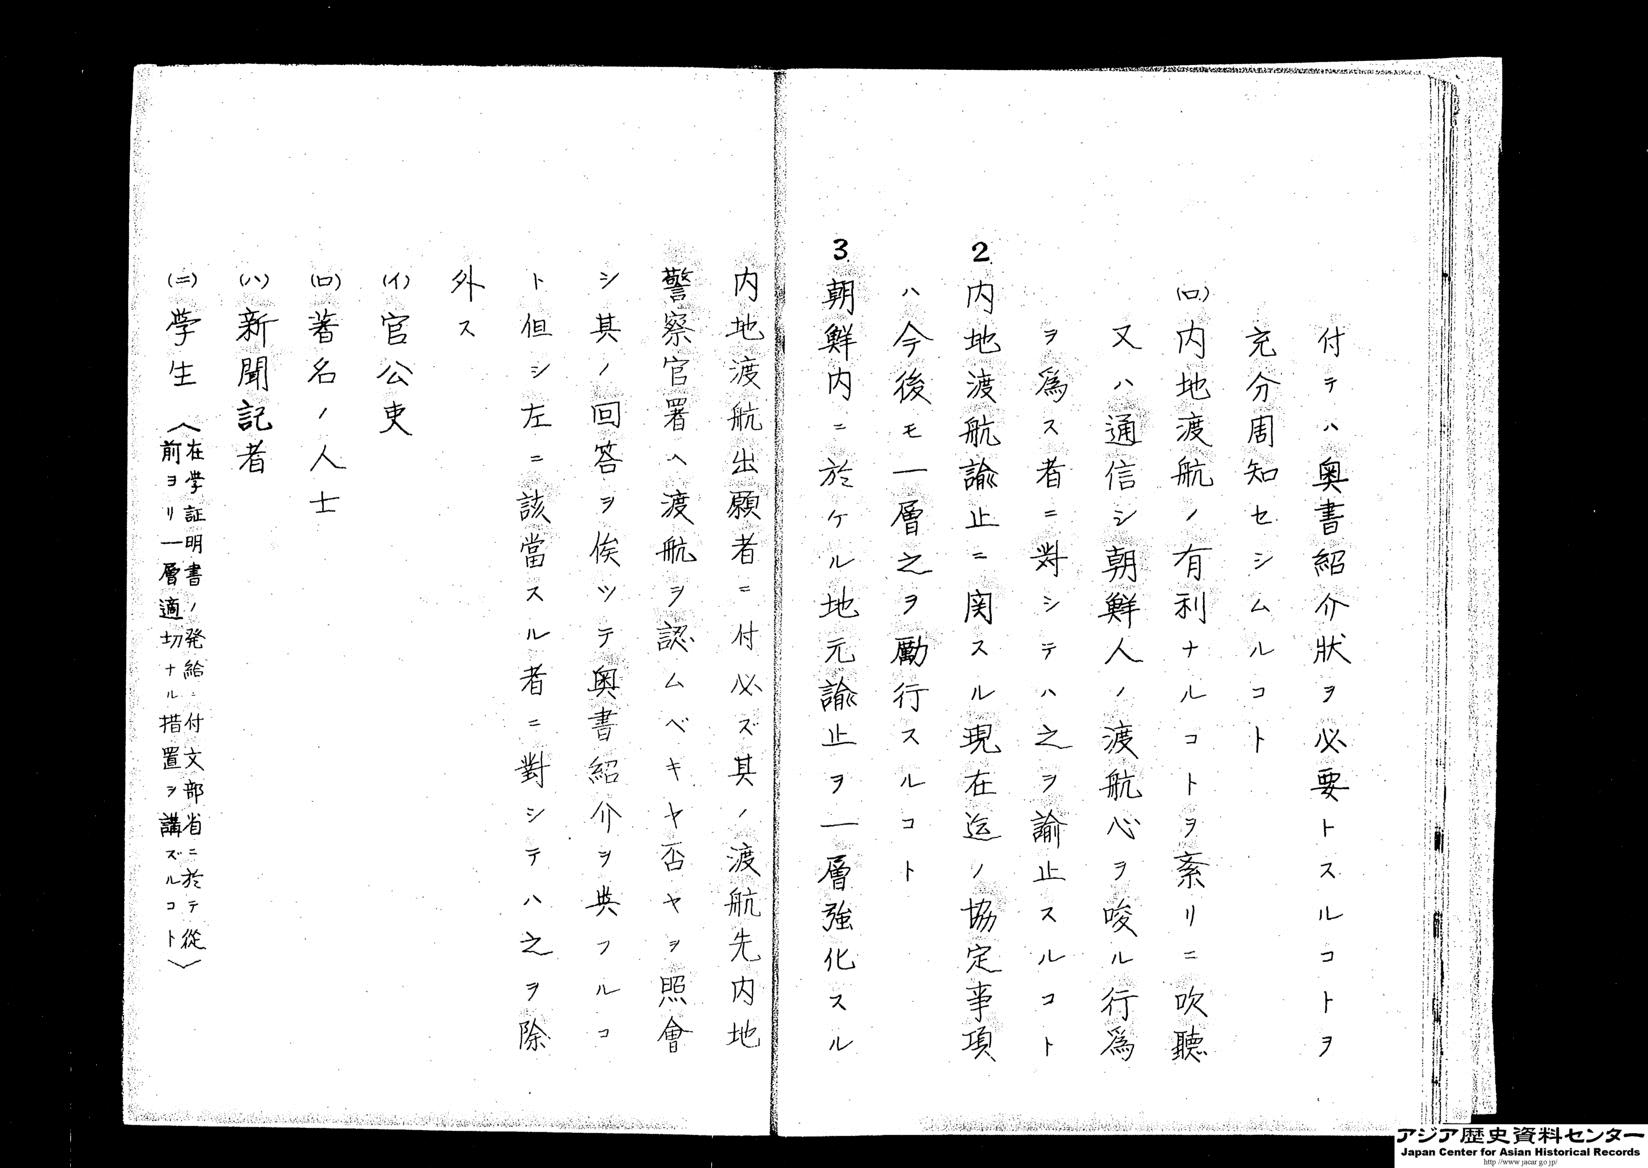 付テハ奥書紹介狀ヲ必要トスルコトヲ
充分周知セシムルコト
(ロ)内地渡航ノ有利ナルコトヲ紊リニ吹聽
又ハ通信シ朝鮮人ノ渡航心ヲ唆ル行爲
ヲ爲ス者ニ對シテハ之ヲ諭止スルコト
2.内地渡航諭止ニ関スル現在迄ノ協定事項
ハ今後モ一層之ヲ勵行スルコト
3.朝鮮内ニ於ケル地元諭止ヲ一層強化スル
内地渡航出願者ニ付必ズ其ノ渡航先内地
警察官署ヘ渡航ヲ認ムベキヤ否ヤヲ照會
シ其ノ回答ヲ俟ツテ奥書紹介ヲ與フルコ
ト但シ左ニ該當スル者ニ對シテハ之ヲ除
外ス
(イ)官公吏
(ロ)著名ノ人士
(ハ)新聞記者
(ニ)学生(在学証明書ノ発給ニ付文部省ニ於テ從
前ヨリ一層適切ナル措置ヲ講ズルコト)
アジア歴史資料センター
Japan Center for Asian Historical Records
http://www.jacar.go.jp/